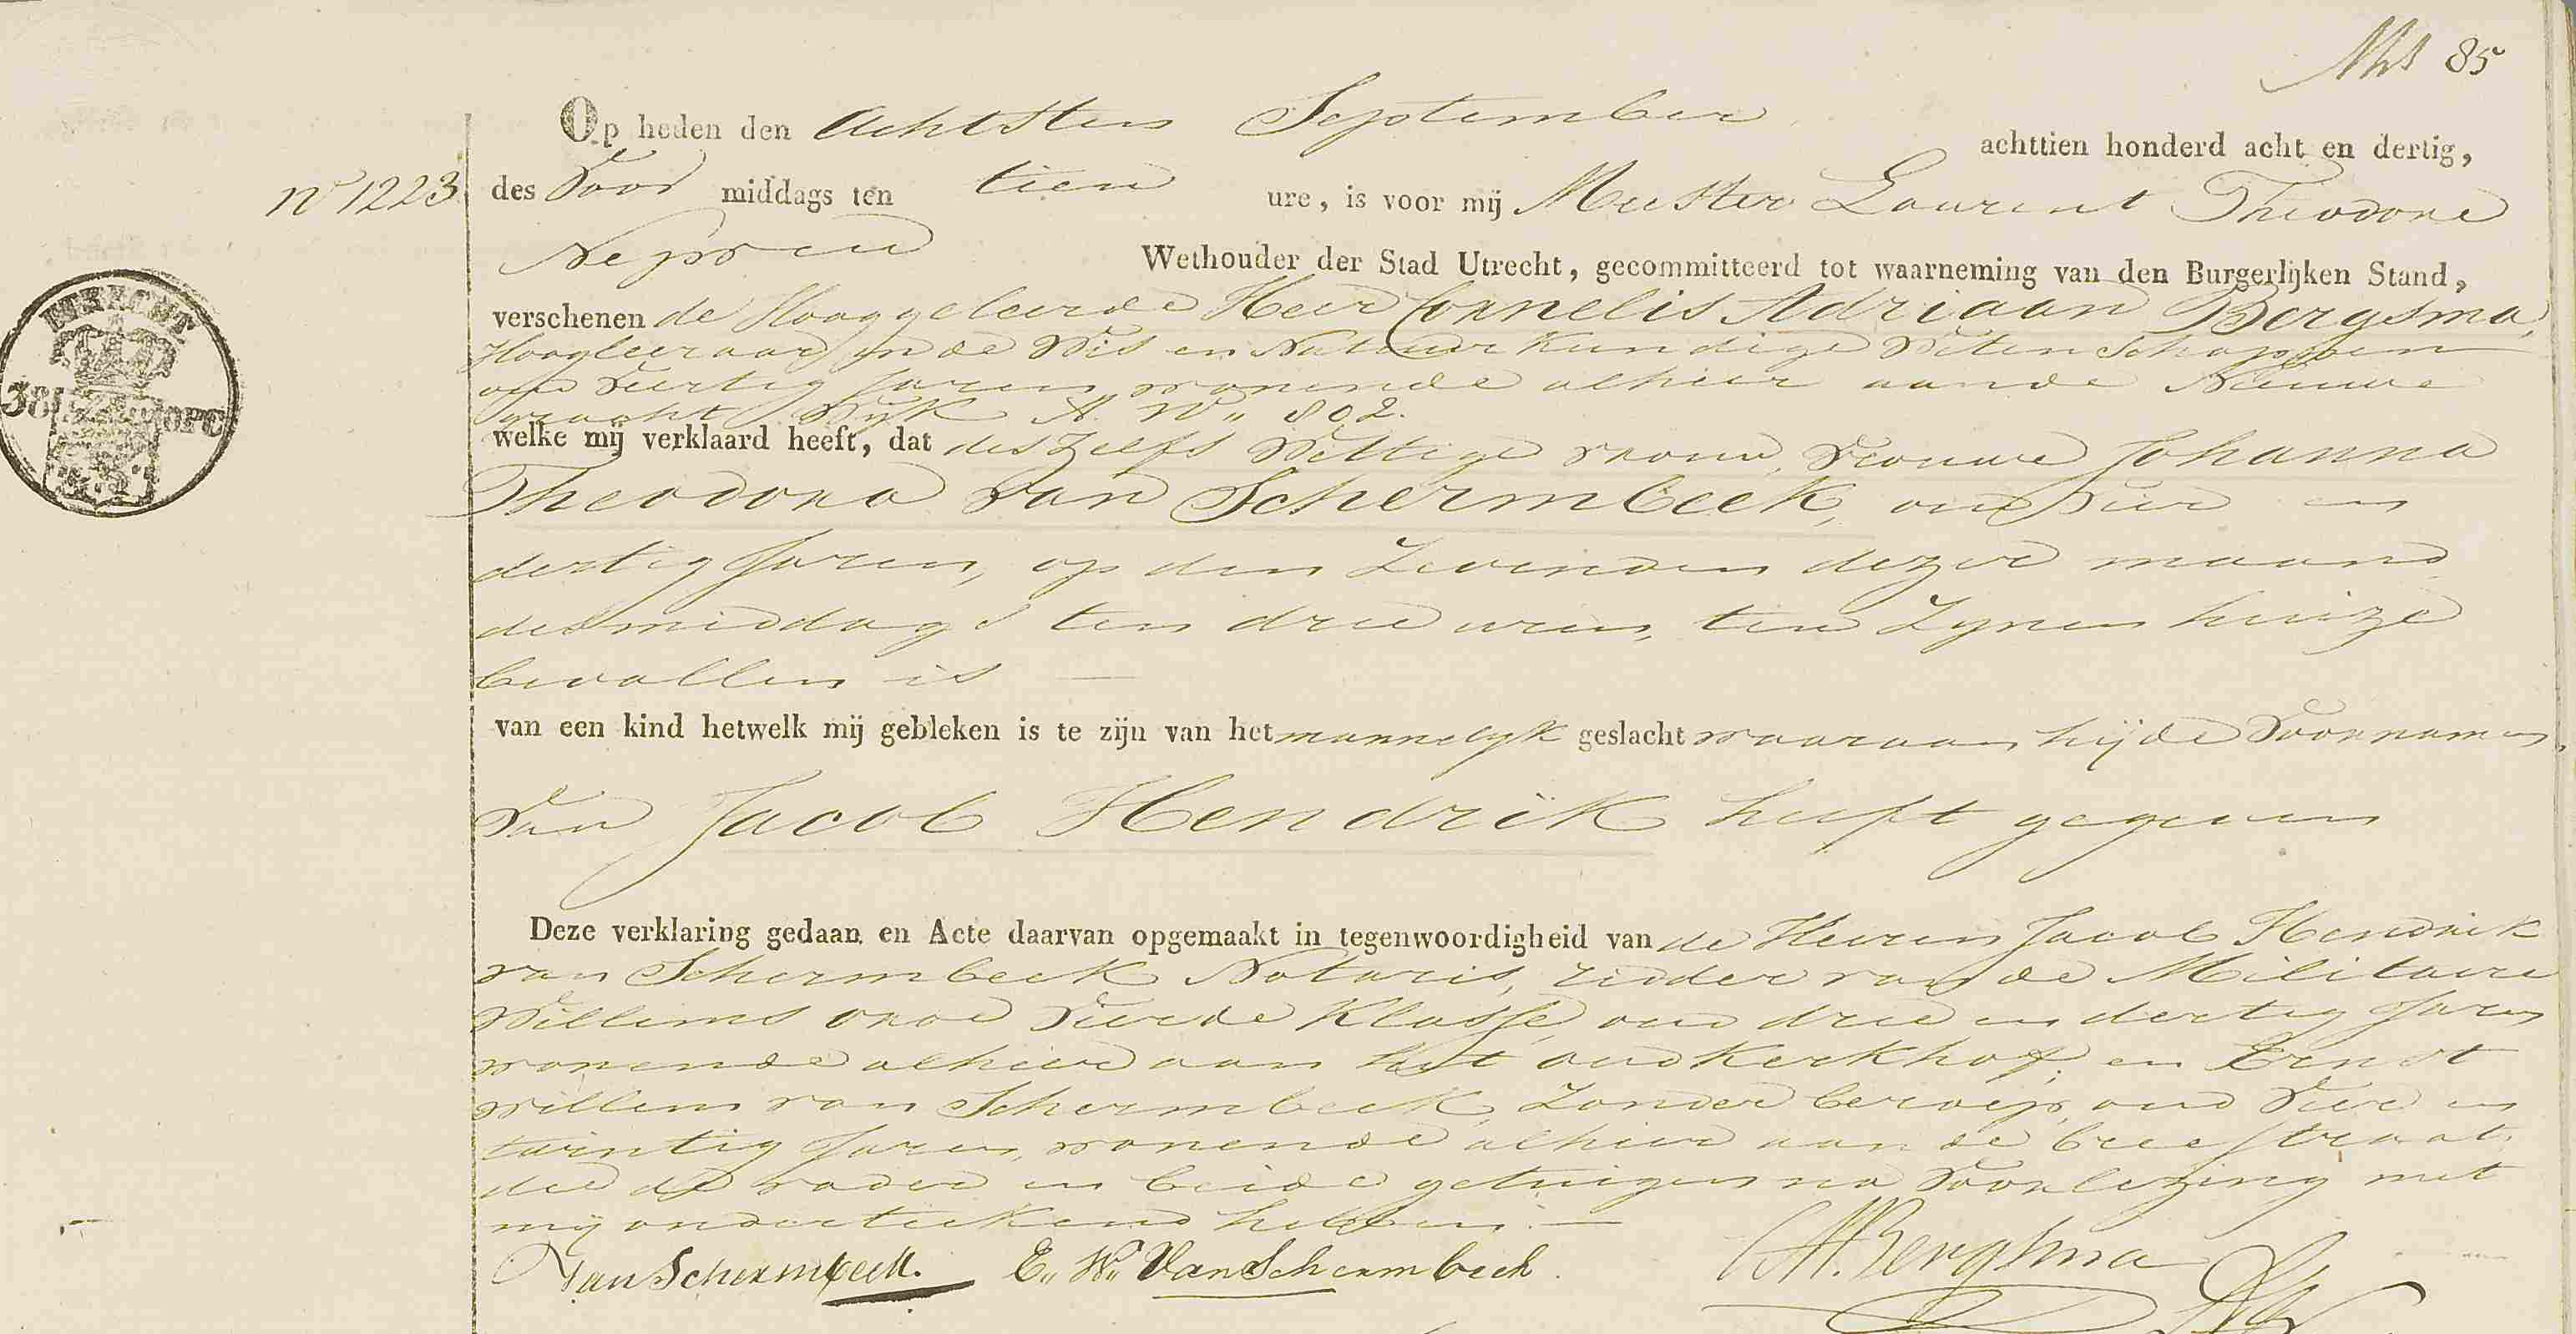 85
Op heden den Achtsten September achttien honderd acht en dertig,
n° 1223
des Voor middags ten tien ure, is voor mij Meester Laurent Theodore
Nepveu Wethouder der Stad Utrecht, gecommitteerd tot waarneming van den Burgerlijken Stand,
verschenen de Hooggeleerde Heer Cornelis Adriaan Bergsma,
Hoogleeraar in de Wis en Natuurkundige Wetenschappen
oud veertig Jaren, wonende alhier aan de Nieuwe
gracht Wijk A N„ 802.
UTRECHT
38 OPC
welke mij verklaard heeft, dat deszelfs Wettige vrouw, Vrouwe Johanna
Theodora van Schermbeek, oud vier en
dertig Jaren, op den Zevenden dezer maand
des middags ten drie uren, ten Zynen huize
bevallen is —
van een kind hetwelk mij gebleken is te zijn van het mannelyk geslacht waaraan hij de Voornamen
van Jacob Hendrik heeft gegeven
Deze verklaring gedaan en Acte daarvan opgemaakt in tegenwoordigheid van de Heeren Jacob Hendrik
van Schermbeek Notaris, ridder van de Militaire
Willems orde vierde Klasse, oud drie en dertig Jaren
wonende alhier aan het oudkerkhof, en Ernst
willem van Schermbeek, Zonder beroep, oud vier en
twintig Jaren, wonende alhier aan de breestraat.
die de vader en beide getuigen na Voorlezing met
mij onderteekend hebben. —
Van Schermbeek. E„ W„ Van Schermbeek. CABergsma